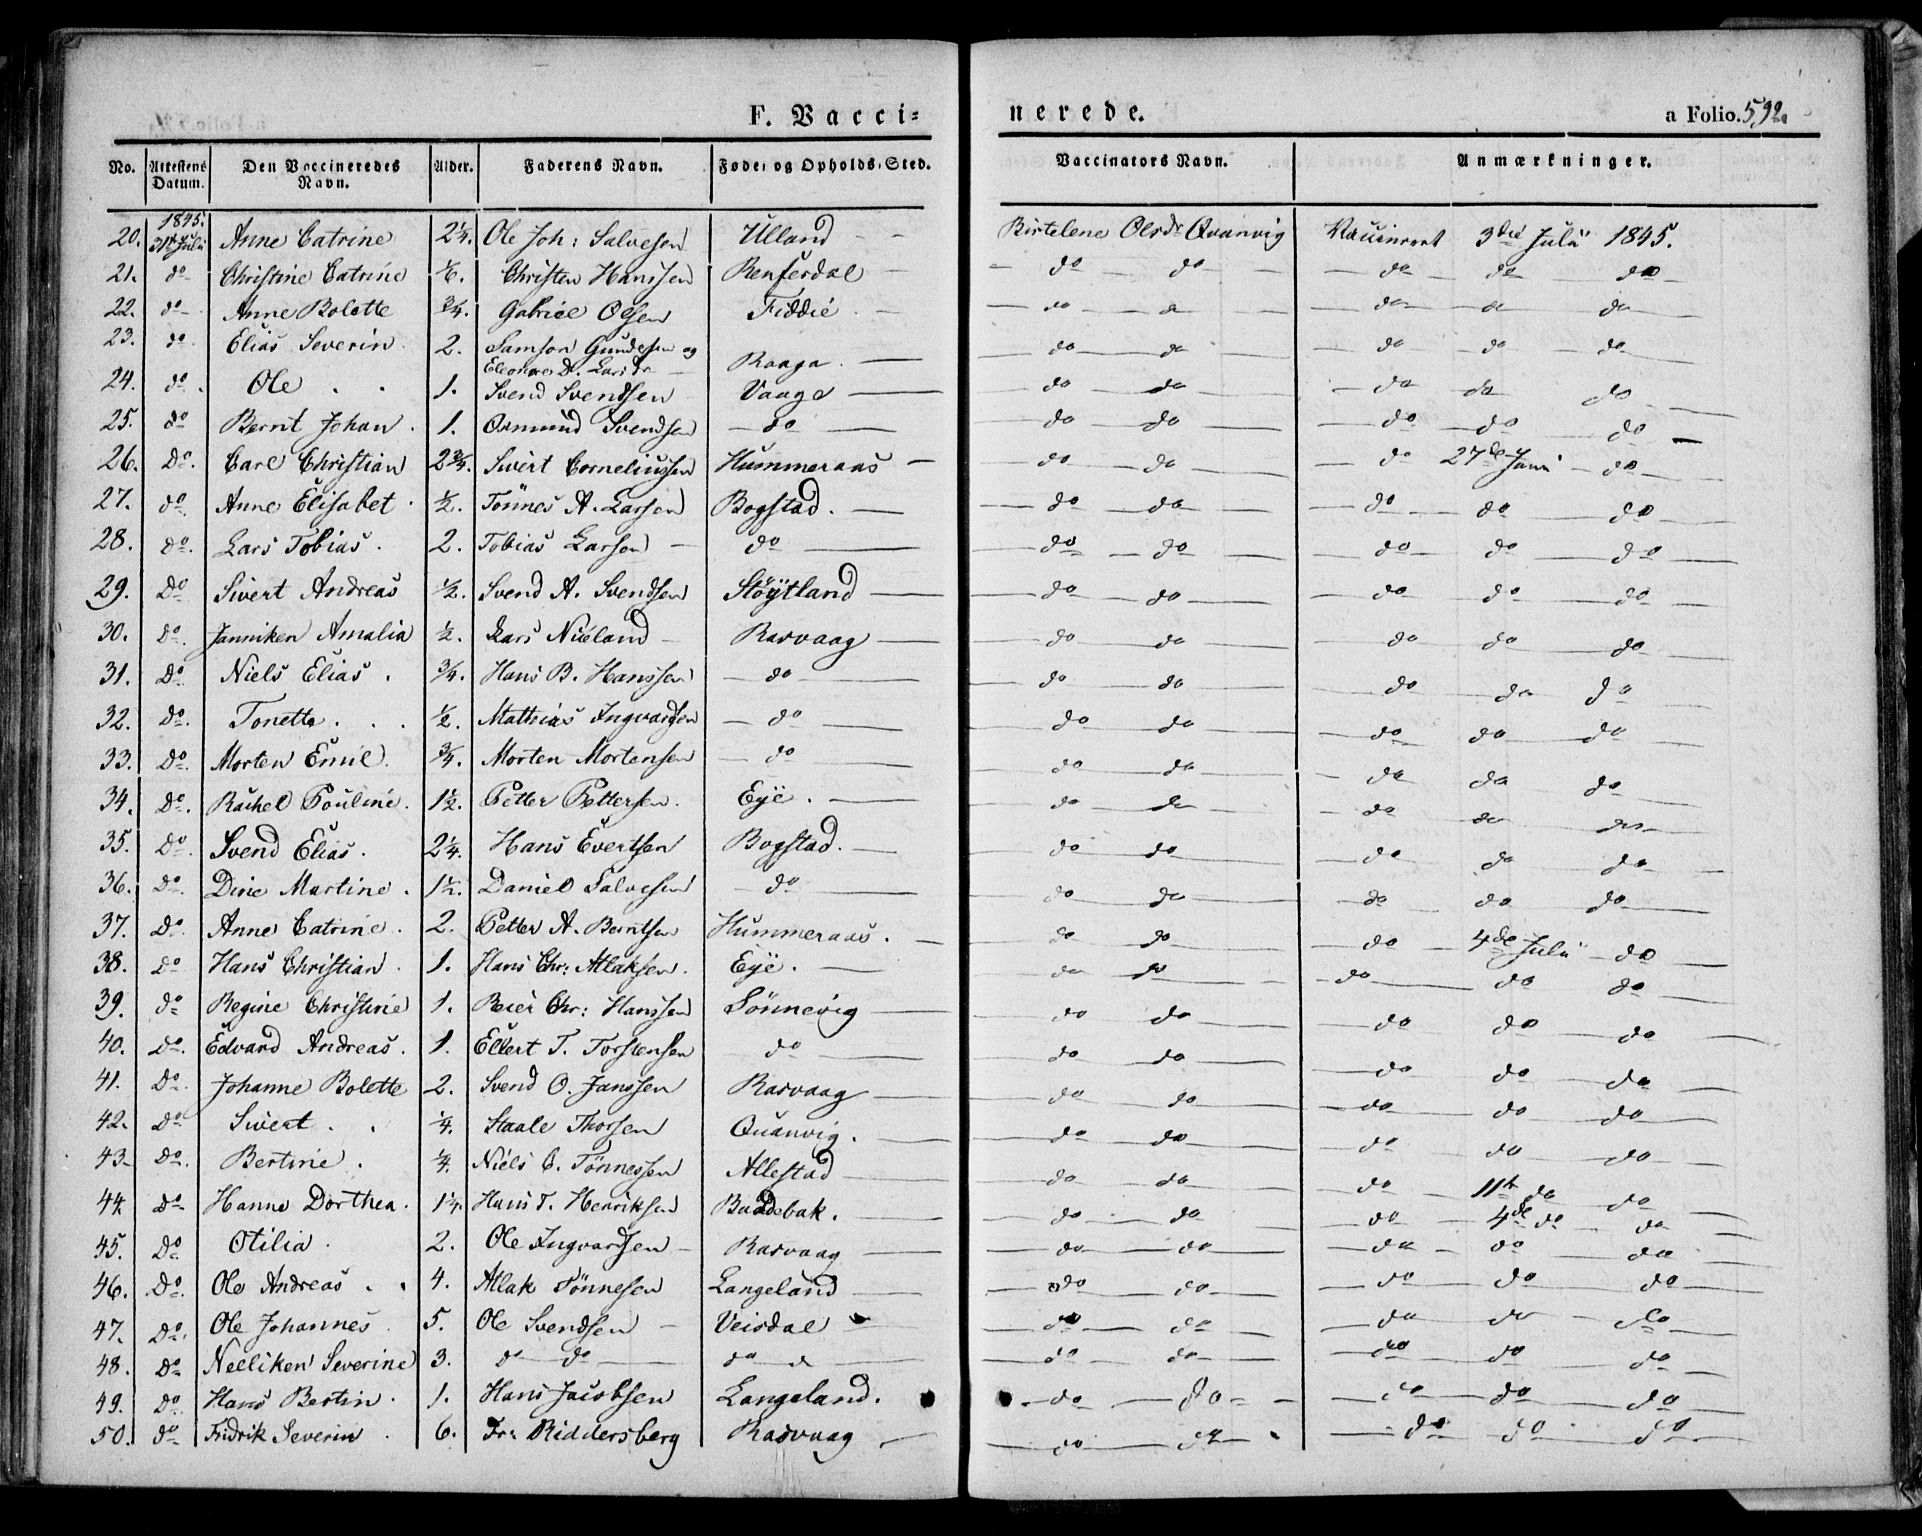 F. Vacci=
nerede.
a Folio. 592.
No. Attestens Datum. Den Vaccineredes Navn. Alder. Faderens Navn. Føde- og Opholds-Sted. Vaccinators Navn. Anmærkninger.
1845.
20. 31te Juli Anne Catrine 2¼. Ole Joh: Salvesen Ulland - - Birtelene Olsdr Qvanvig Vaccineret 3die Juli 1845.
21. do Christine Catrine ⅙. Christen Hanssen Renferdal - do do do do do
22. do Anne Bolette ¾. Gabriel Olsen Fiddie. - do do do do do
23. do Elias Severin. 2. Samson Gundersen og
Eleonore D. Larsdr Raaga. - do do do do do
24. do Ole . . 1. Svend Svendsen Vaage - do do do do do
25. do Bernt Johan. 1. Osmund Svendsen - do - do do do do do
26. Do. Carl Christian 2¾. Sivert Corneliussen Hummeraas - do do do 27de Juni do
27. do Anne Elisabet. ½. Tönnes A. Larsen Bogstad. - do do do do do
28. do. Lars Tobias. 2. Tobias Larsen - do do do do do do
29. Do Sivert Andreas ½. Svend A. Svendsen Stöÿtland do do do do do
30. Do. Janniken Amalia ½. Lars Nueland - Rasvaag do do do do do
31. Do Niels Elias. ¾. Hans B. Hanssen - do - do do do do do
32. Do. Tonette. . . ½. Mathias Ingvardsen - do - do do do do do
33. Do. Morten Emil. ¾. Morten Mortensen - do do do do do do
34. Do. Rachel Pouline. 1½. Petter Pettersen. Eÿe. - do do do do do
35. Do. Svend Elias. 2¼. Hans Evertsen Bogstad. - do do do do do
36. Do. Dine Martine. 1½. Daniel Salvesen - do do do do do do
37. Do. Anne Catrine. 2. Petter A. Berntsen Hummeraas. - do do do 4de Juli do
38. Do Hans Christian. 1. Hans Chr: Atlaksen. Eÿe. - do do do do do
39. do Regine Christine 1. Reier Chr: Hanssen Sönnevig do do do do do
40. Do. Edvard Andreas. 1. Ellert T. Torstensen do do do do do do
41. Do. Johanne Bolette 2. Svend O. Janssen Rasvaag do do do do do
42. Do Sivert. . ¼. Staale Thorsen Quanvig. do do do do do
43. Do. Bertine. ¼. Niels C. Tönnessen Allestad do do do do do
44. Do Hanne Dorthea. 1¼. Hans T. Henriksen Buddebak. do do do 11te do do
45. Do Otilia. 2. Ole Ingvardsen - Rasvaag do do do 4de do do
46. Do. Ole Andreas. . 4. Atlak Tönnesen Langeland do do do do do
47. Do. Ole Johannes 5. Ole Svendsen - Veisdal do do do do do
48. Do Neeliken Severine 3. do do do do do do do do do
49. Do Hans Bertin. 1. Hans Jacobsen Langeland. do do do do do
50. do Fridrik Severin. 6. Fr: Riddersberg Rasvaag do do do do do